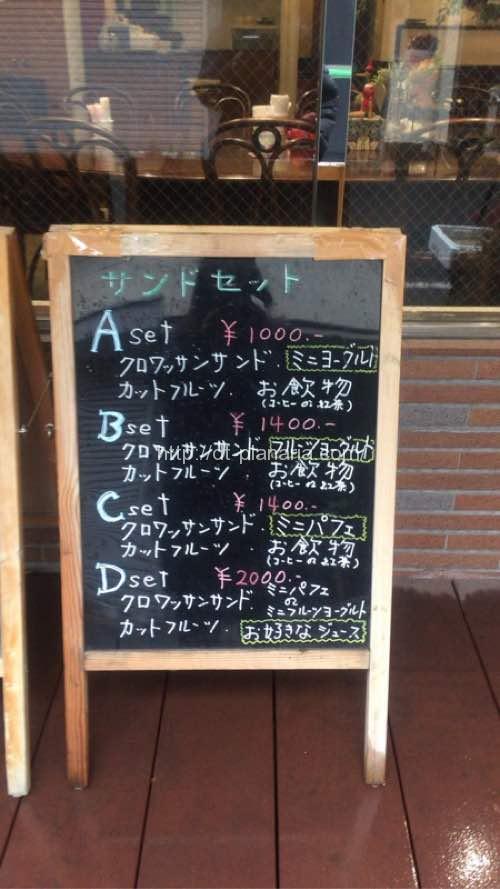 サンドセット
A set ¥1000.-
クロワッサンサンド. ミニヨーグルト
カットフルーツ. お飲物
(コーヒー or 紅茶)
B set ¥1400.-
クロワッサンサンド. フルーツヨーグルト
カットフルーツ. お飲物
(コーヒー or 紅茶)
C set ¥1400.-
クロワッサンサンド. ミニパフェ
カットフルーツ. お飲物
(コーヒー or 紅茶)
D set ¥2000.-
クロワッサンサンド. ミニパフェ
or
ミニフルーツヨーグルト
カットフルーツ. お好きなジュース